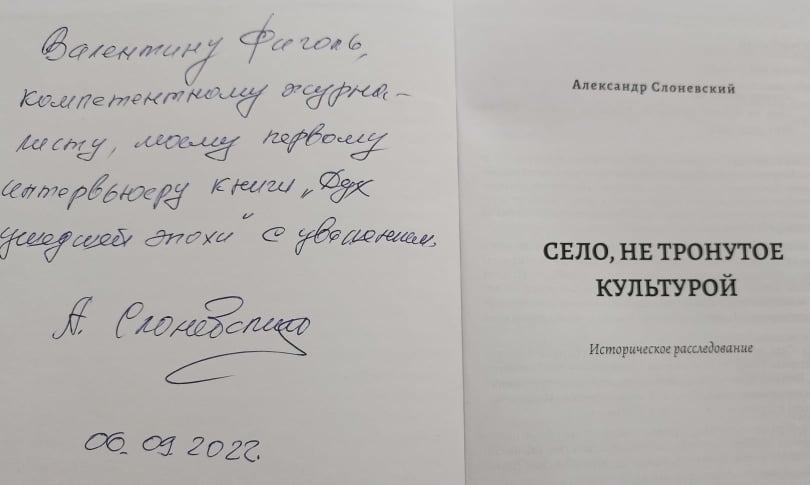 Валентину Фиголь,
компетентному журна-
листу, моему первому
интервьюеру книги „Дух
ушедшей эпохи" с уважением,
А. Слоневский
06.09.2022.
Александр Слоневский
СЕЛО, НЕ ТРОНУТОЕ
КУЛЬТУРОЙ
Историческое расследование